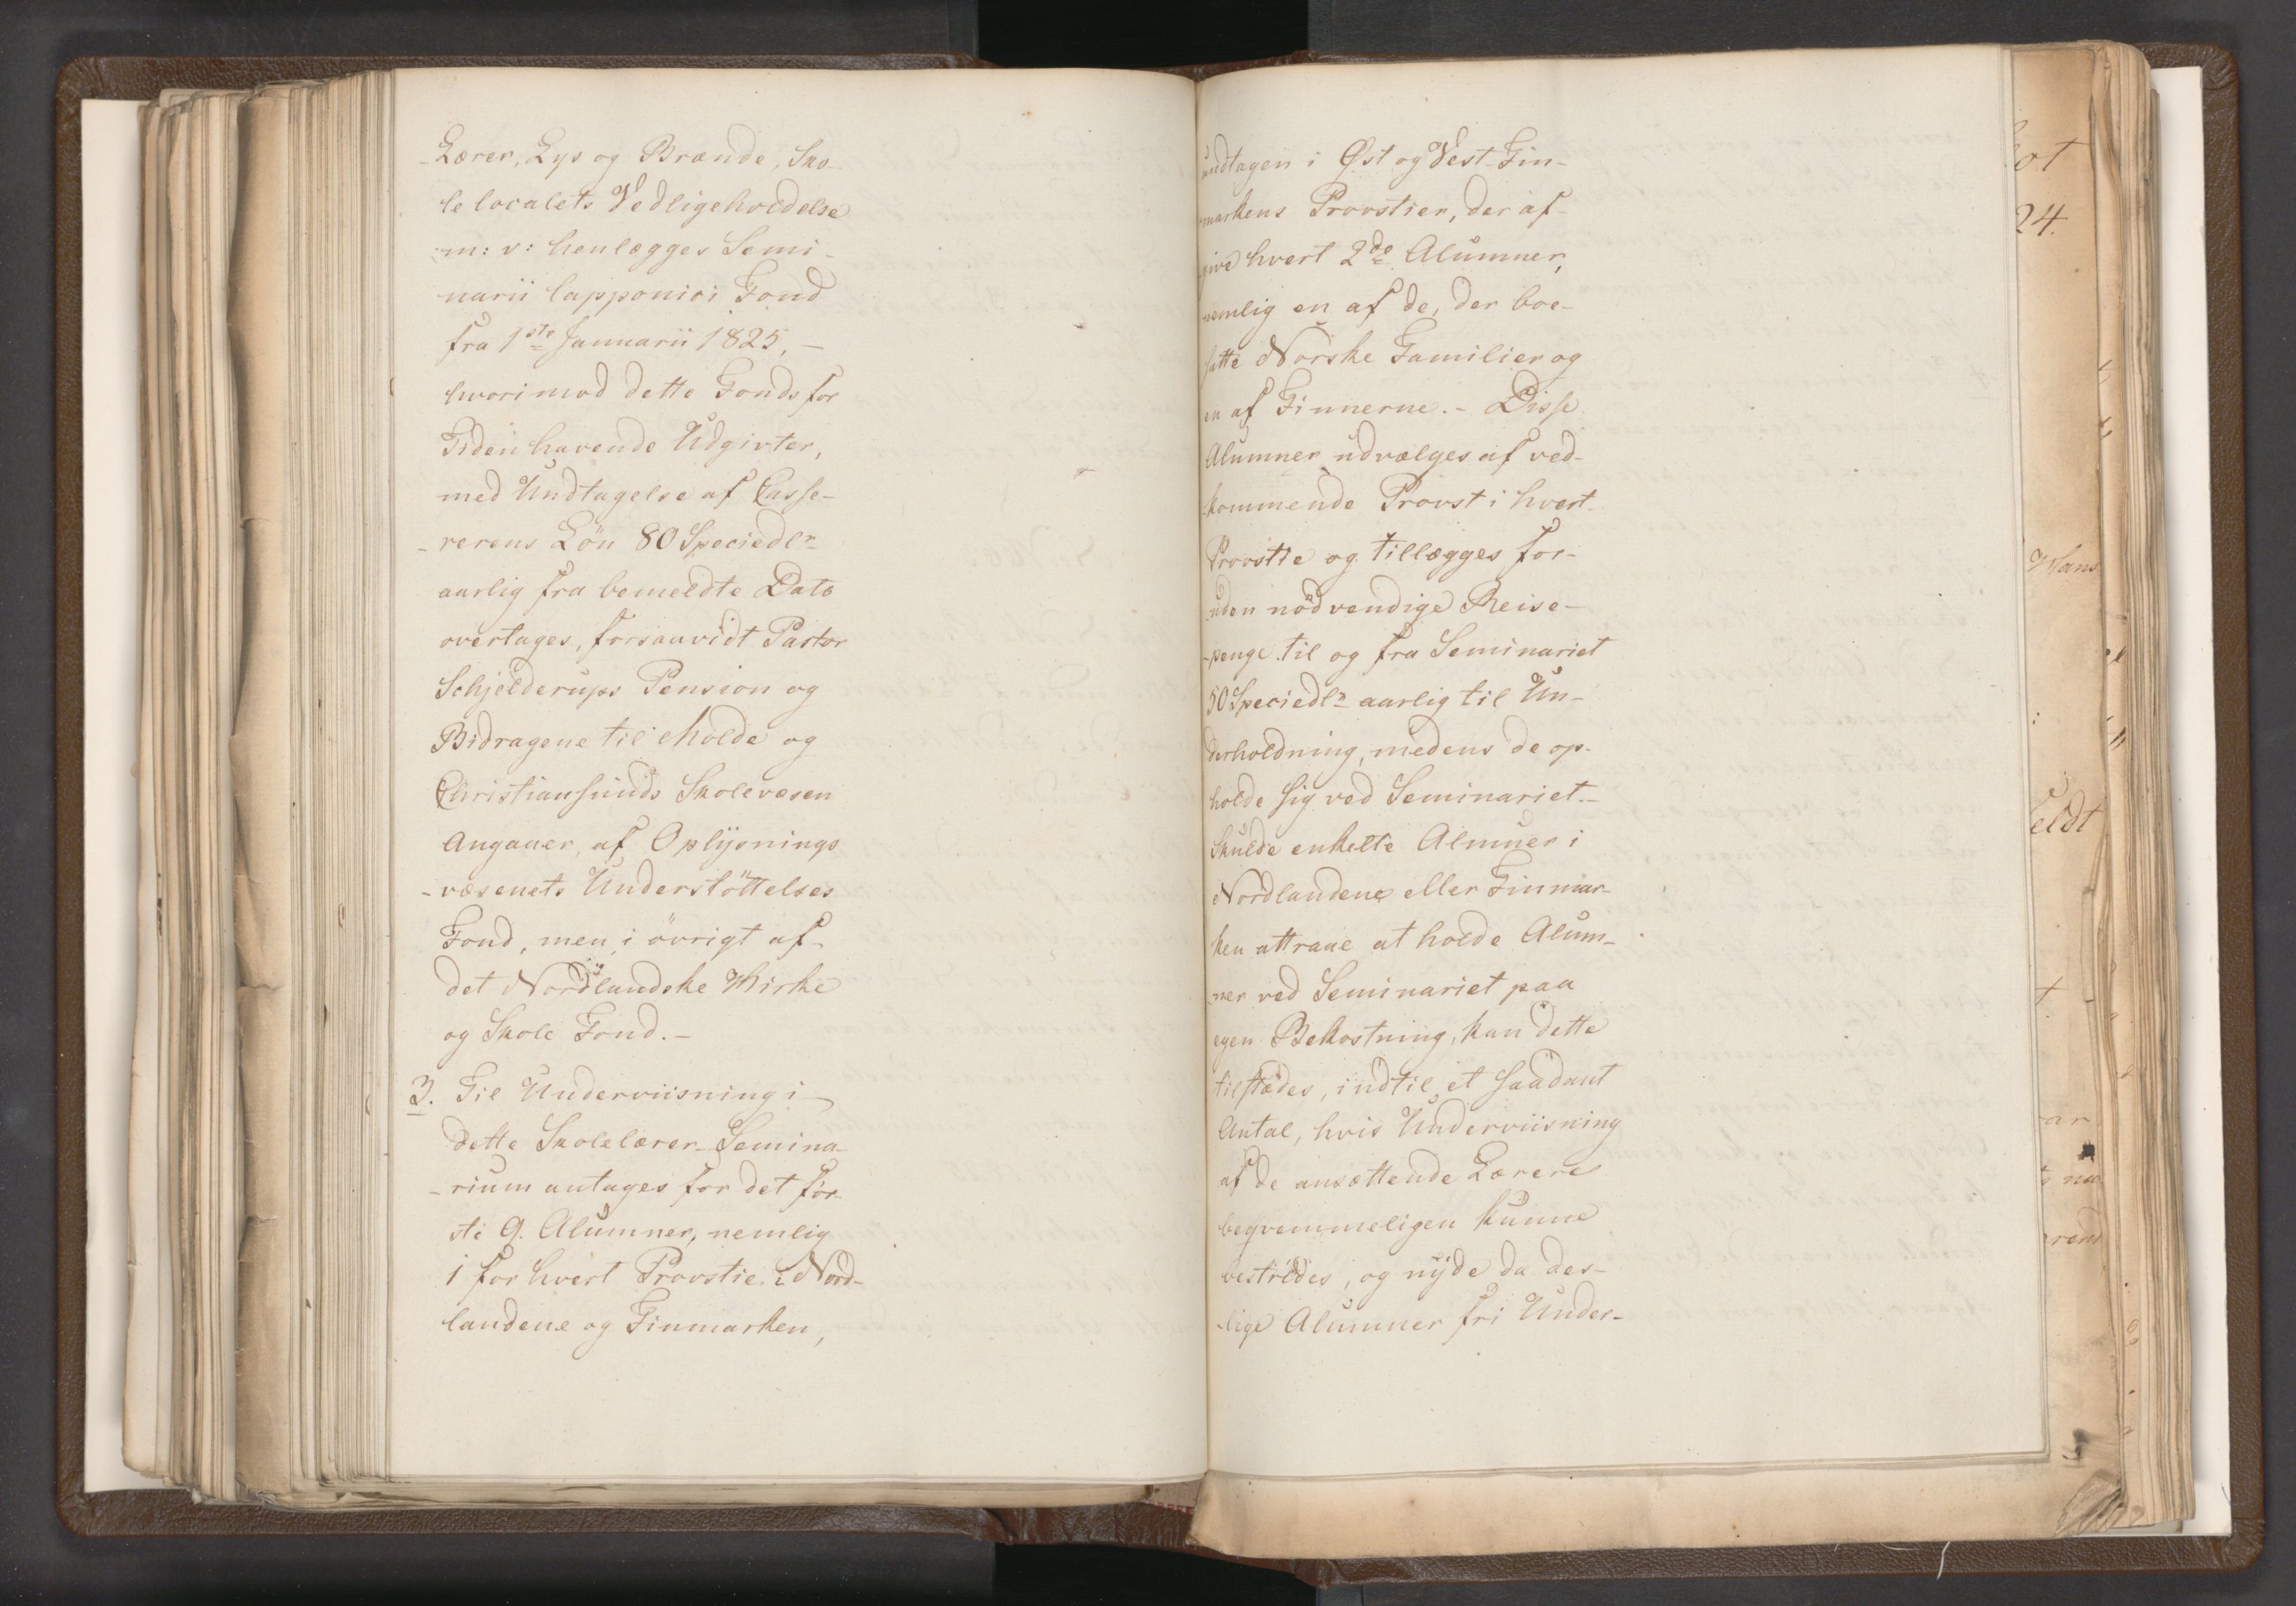 -Lærer, Lys og Brænde, Sko-
le localets Vedligeholdelse
m: v: henlægges Semi-
narii lapponici Fond
fra 1ste Januarii 1825, -
hvorimod dette Fonds for
Tiden havende Udgivter,
med Undtagelse af Casse-
-rerens Lön 80 Speciedlr
aarlig fra bemeldte Dato
overtages, forsaavidt Pastor
Schjelderups Pension og
Bidragene til Molde og
Christiansunds Skolevæsen
Angaaer, af Oplysnings
-væsenets Understöttelses
Fond, men i övrigt af
det Nordlandske Kirke
og Skole Fond. -
3. Til Underviisning i
dette Skolelærer-Semina-
-rium antages for det för-
ste 9. Alumner, nemlig
1 for hvert Provstie i Nord-
landene og Finmarken,
undtagen i Øst og Vest-Fin-
markens Provstier, der af-
give hvert 2de Alumner,
nemlig en af de, der boe-
satte Norske Familier og
en af Finnerne. - Disse
Alumner udvælges af ved-
kommende Provst i hvert
Provstie og tillægges for-
uden nödvendige Reise-
-penge til og fra Seminariet
50 Speciedlr aarlig til Un-
derholdning, medens de op-
holde sig ved Seminariet. -
Skulde enkelte Almuer i
Nordlandene eller Finmar-
ken attraae at holde Alum-
ner ved Seminariet paa
egen Bekostning, kan dette
tilstædes, indtil et saadant
Antal, hvis Underviisning
af de ansættende Lærere
beqvemmeligen kunne
bestrides, og nyde da des-
-lige Alumner fri Under-
ot
24.
eldt